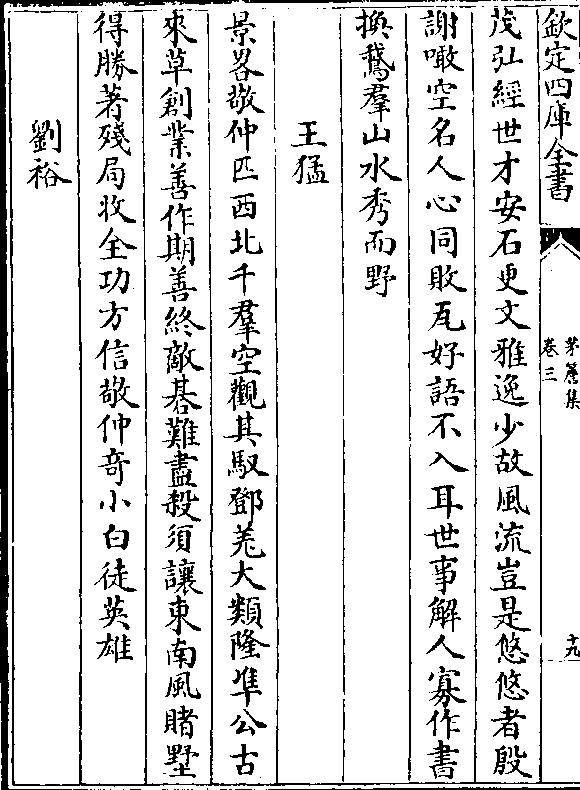 欽定四庫全書
茅簷集
卷三
十九
茂弘經世才安石更文雅逸少故風流豈是悠悠者殷
謝噉空名人心同敗瓦好語不入耳世事解人寡作書
換鵞羣山水秀而野
王猛
景畧敬仲匹西北千羣空觀其馭鄧羌大類隆準公古
來草創業善作期善終敵碁難盡殺須讓東南風賭墅
得勝著殘局收全功方信敬仲竒小白徒英雄
劉裕